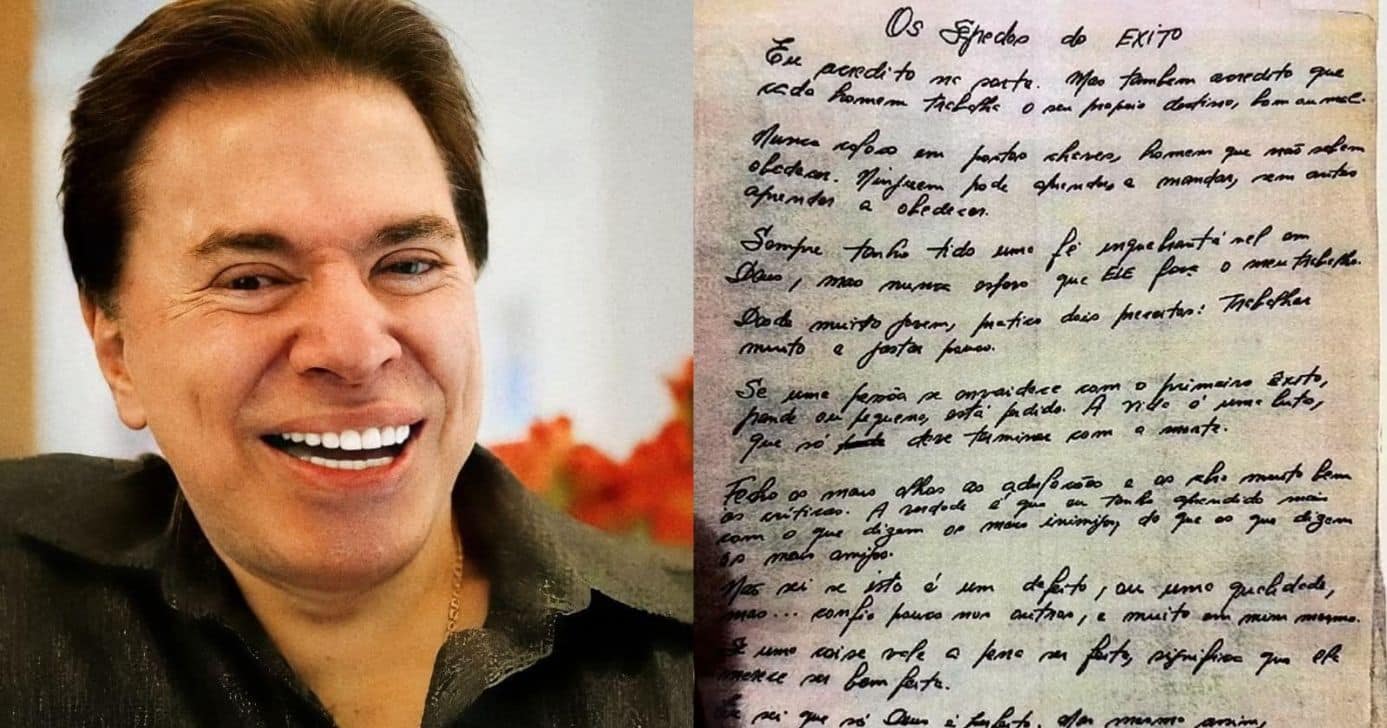 Os Segredos do EXITO
Eu acredito na sorte. Mas tambem acredito que
cada homem trabalha o seu proprio destino, bom ou mal.
Nunca coloco em postos chaves, homem que não sabem
obedecer. Ninguem pode aprender a mandar, sem antes
aprender a obedecer.
Sempre tenho tido uma fé inquebrantável em
Deus, mas nunca espero que ELE faça o meu trabalho.
Desde muito jovem, pratico dois preceitos: Trabalhar
muito e gastar pouco.
Se uma pessôa se envaidece com o primeiro êxito,
grande ou pequeno, está perdido. A vida é uma luta,
que só deve terminar com a morte.
Fecho os meus olhos as adulações e os abro muito bem
as críticas. A verdade é que eu tenho aprendido mais
com o que dizem os meus inimigos, do que os que dizem
os meus amigos.
Não sei se isto é um defeito, ou uma qualidade,
mas... confio pouco nos outros, e muito em mim mesmo.
uma coisa vale a pena ser feita, significa que ela
merece ser bem feita.
sei que só Deus é perfeito. Mas mesmo assim,